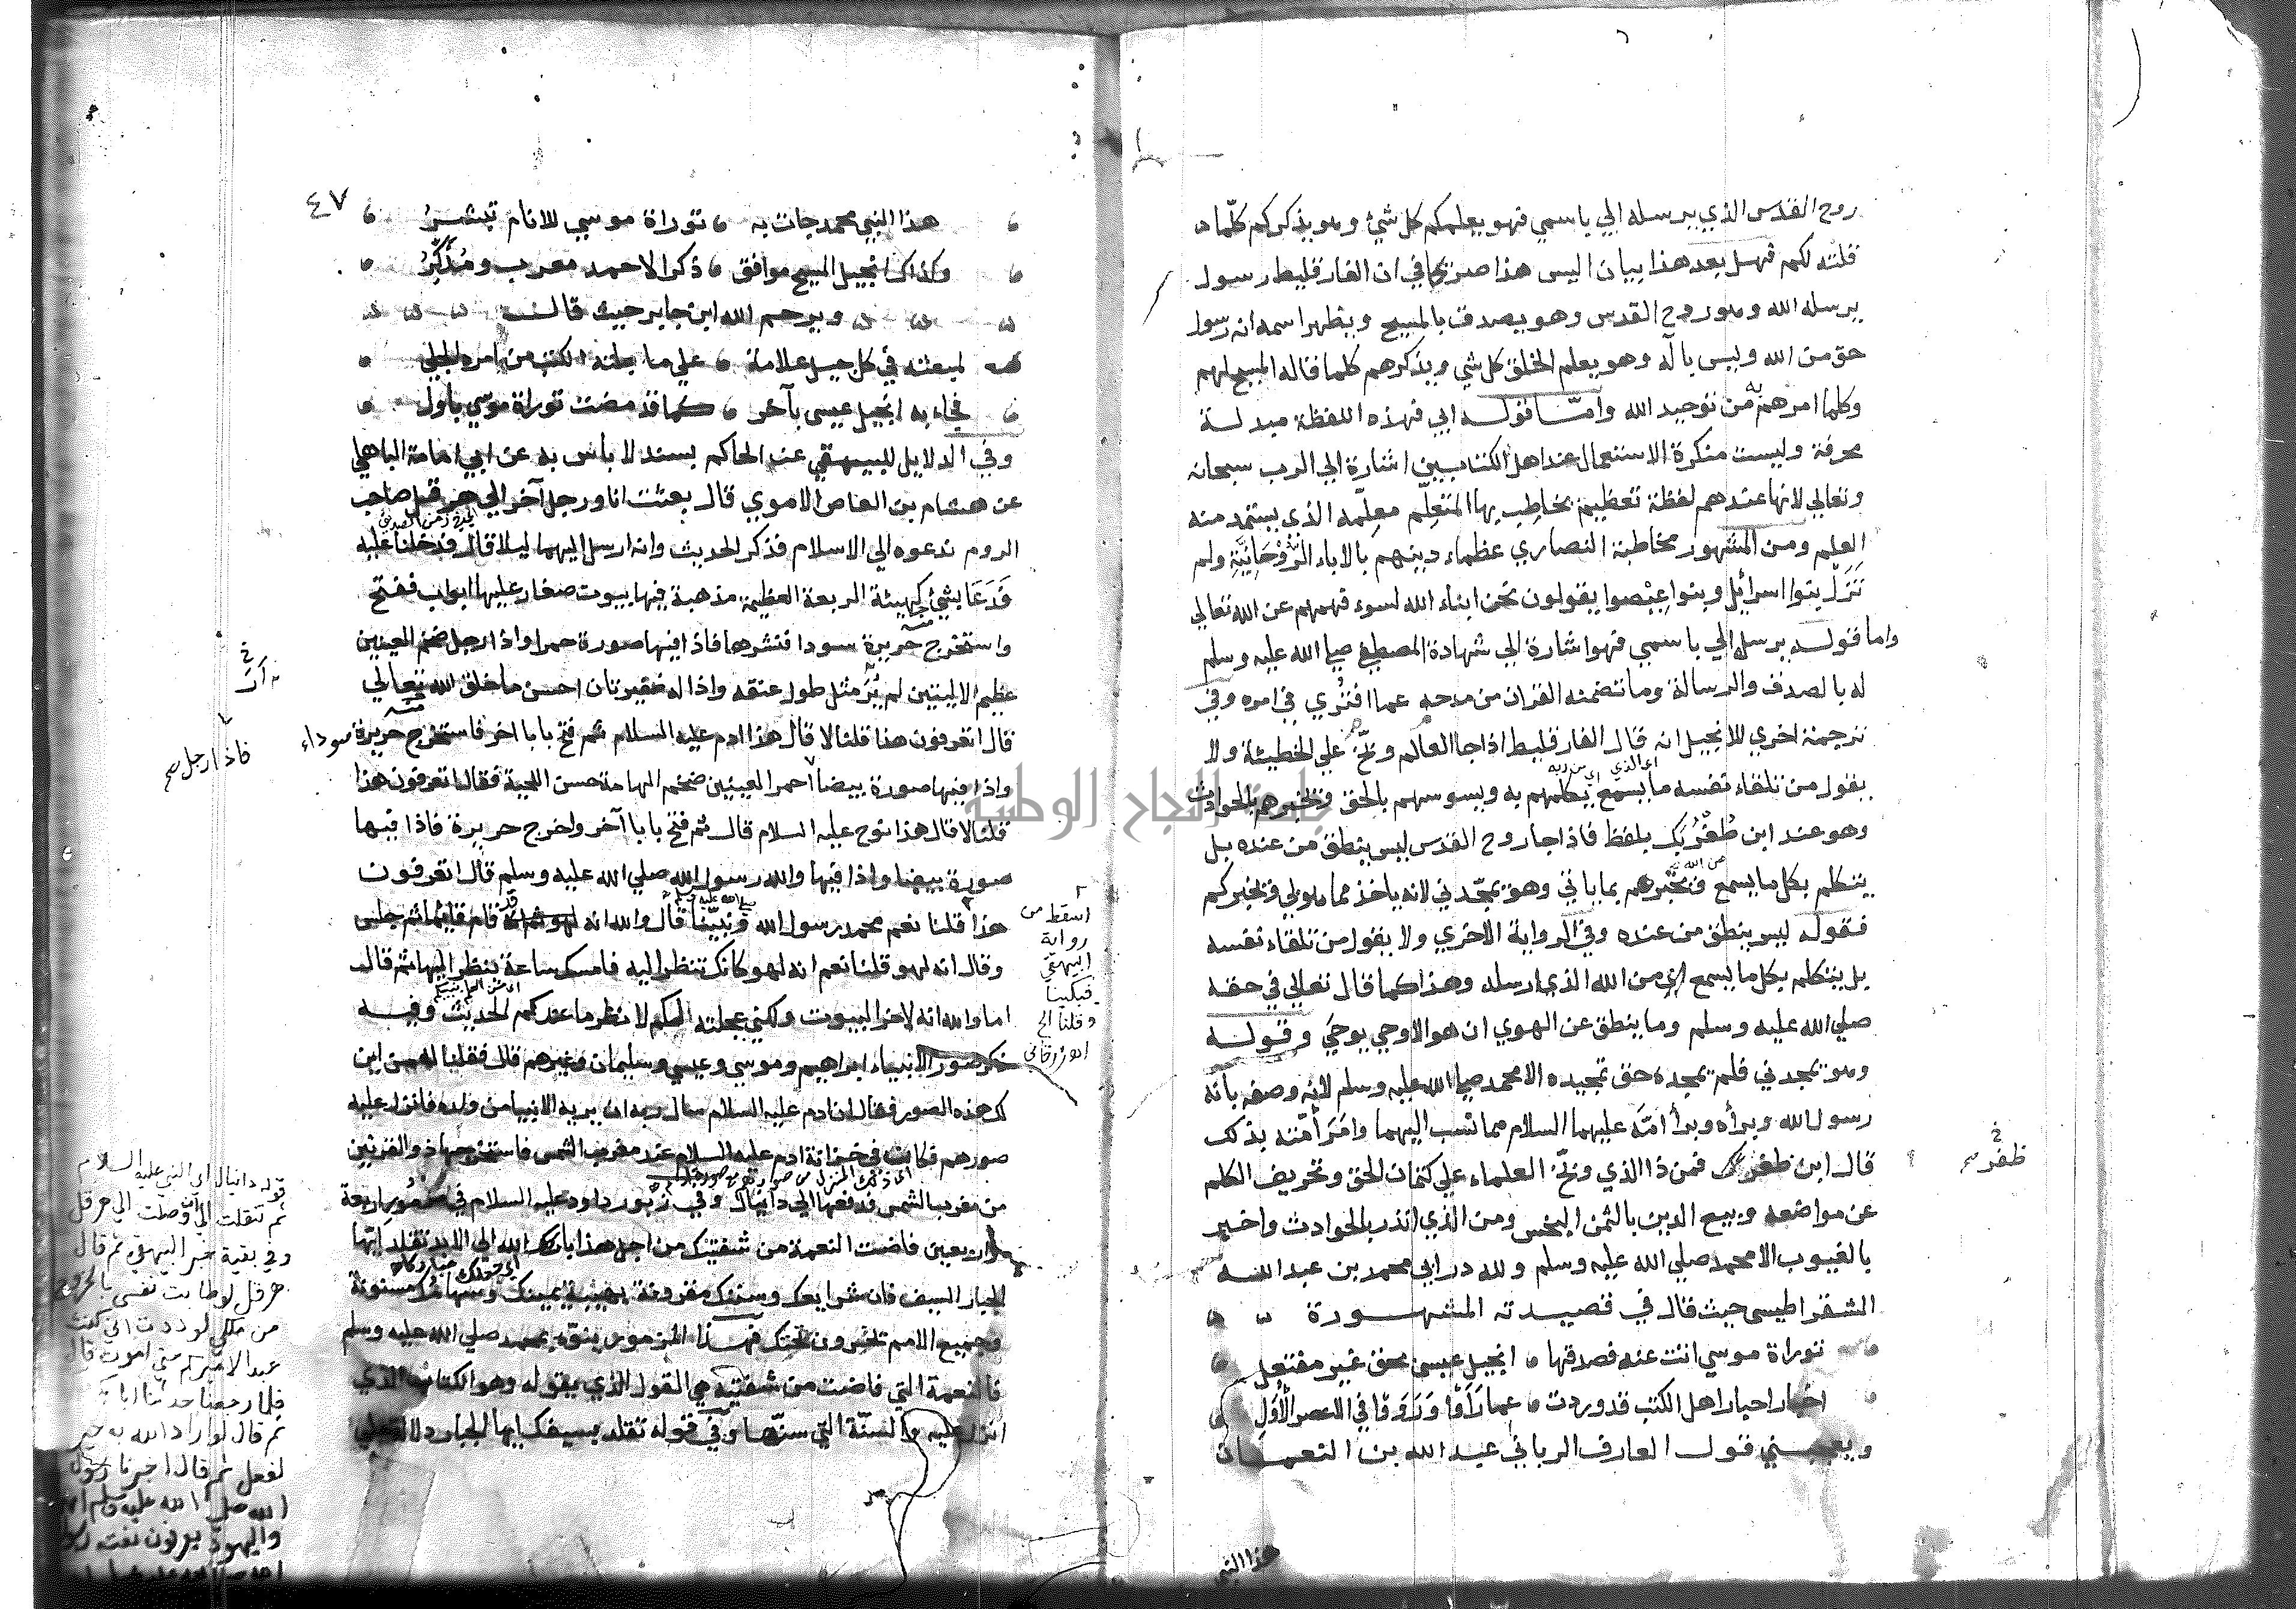 روح القدس الذي يرسله الي باسمي فهو يعلمكم كل شئ وهو يذكركم كلما
قلته لكم فهل بعد هذا بيان اليس هذا صريحا في ان الفارقليط رسول
يرسله الله وهو روح القدس وهو يصدق بالمسيح ويظهر اسمه انه رسول
حق من الله وليس بآله وهو يعلم الخلق كل شي ويذكرهم كلما قاله المسيح لهم
وكلما امرهم به من توحيد الله وامّا قوله ابي فهذه اللفظة مبدلة
محرفة وليست منكرة الاستعمال عند اهل الكتابين اشارة الي الرب سبحانه
وتعالي لانها عندهم لفظة تعظيم يخاطب بها المتعلم معلمه الذي يستمد منه
العلم ومن المشهور مخاطبة النصاري عظماء دينهم بالاباء الرُّوْحَانِيَّةِ ولم
تزل بنوا اسرائيل وبنوا عيصوا يقولون نحن ابناء الله لسوء فهمهم عن الله تعالي
واما قوله يرسل الي باسمي فهو اشارة الي شهادة المصطفي صلي الله عليه وسلم
له بالصدق والرسالة وما تضمنه القران من مدحه عما افتُري في امره وفي
ترجمة اخري للانجيل انه قال الفارقليط اذا جا العالم وبّخ علي الخطيئة ولا
يقول من تلقاء نفسه ما يسمع يكلمهم به ويسوسهم بالحق ويخبرهم بالحوادث
اي الذي اي من ربه
وهو عند ابن طُغْرُبَك بلفظ فاذا جا روح القدس ليس ينطق من عنده بل
يتكلم بكل ما يسمع من الله ويخبرهم بما ياتي وهو يمجّدني لانه ياخذ مما هو لي ويخبركم
فقوله ليس ينطق من عنده وفي الرواية الاخري ولا يقول من تلقاء نفسه
بل يتكلم بكل ما يسمع اي من الله الذي ارسله وهذا كما قال تعالي في حقه
صلي الله عليه وسلم وما ينطق عن الهوي ان هو الا وحي يوحي وقوله
وهو يمجدني فلم يمجده حق تمجيده الا محمد صلي الله عليه وسلم لانه وصفه بانه
رسول الله وبرأه وبرأ امّه عليهما السلام مما نسب اليهما وامر امّته بذلك
قال ابن ظفر فمن ذا الذي وبّخ العلماء علي كتمان الحق وتحريف الكلم
خ
ظفر صح
عن مواضعه وبيع الدين بالثمن البخس ومن الذي انذر بالحوادث واخبر
بالغيوب الا محمد صلي الله عليه وسلم ولله در ابي محمد بن عبد الله
الشقراطيسي حيث قال في قصيدته المشهورة
توراة موسي اتت عنه فصدقها انجيل عيسي بحق غير مفتعل
اخبار احبار اهل الكتب قد وردت عما رَأَوْا وَرَوَوْا في الاعصر الأُوَلِ
ويعجبني قول العارف الرباني عبد الله بن النعمان
هذا النبي
٤٧
هذا النبي محمد جات به توراة موسي للانام تبشر
وكذاك انجيل المسيح موافق ذكرا لاحمد معرب ومُذَكِّرُ
ويرحم الله ابن جابر حيث قال
لمبعثه في كل جيل علامة علي ما جلته الكتب من امره الجلي
فجاء به انجيل عيسي بآخر كما قد مضت توراة موسي باول
وفي الدلايل للبيهقي عند الحاكم بسند لا باس به عن ابي امامة الباهلي
عن هشام بن العاص الاموي قال بعثت انا ورجل آخر الي هرقل صاحب
الروم ندعوه الي الاسلام فذكر الحديث وانه ارسل اليهما ليلا قال فدخلنا عليه
فَدَعَا بشئ كهيئة الربعة العظيمة مذهبة فيها بيوت صغار عليها ابواب ففتح
واستخرج حريرة سودا فنشرها فاذا فيها صورة حمرا واذا رجل ضخم العينين
عظيم الاليتين لم يُرَ مثل طول عنقه واذا له ضفيرتان احسن ما خلق الله تعالي
قال اتعرفون هذا قلنا لا قال هذا ادم عليه السلام ثم فتح بابا اخر فاستخرج حريرة سوداء
واذا فيها صورة بيضا احمر العينين ضخم الهامة حسن اللحية فقال اتعرفون هذا
فاذا رجل صح
قلنا لا قال هذا نوح عليه السلام قال ثم فتح بابا آخر واخرج حريرة فاذا فيها
صورة بيضا واذا فيها والله رسول الله صلي الله عليه وسلم قال اتعرفون
هذا قلنا نعم محمد رسول الله ونبيّنا قال والله انه لهو ثم قام قايما ثم جلس
صلي الله عليه وسلم
وقال انه لهو قلنا نعم انه لهو كانك تنظر اليه فامسك ساعة ينظر اليها ثم قال
اما والله انه لاخر البيوت ولكني عجلته لكم لانظر ما عندكم الحديث وفيه
اسقط من
رواية
البيهقي
فبكينا
وقلنا الخ
اهـ زرقاني
ذكر صور الانبياء ابراهيم وموسي وعيسي وسليمان وغيرهم قال فقلنا له من اين
لك هذه الصور فقال ان ادم عليه السلام سال ربه ان يريه الانبيا من ولده فانزل عليه
صورهم فكانت في خزانة ادم عليه السلام عند مغرب الشمس فاستخرجها ذو القرنين
من مغرب الشمس فدفعها الي دانيال وفي زبور داود عليه السلام في مزمور اربعة
واربعين فاضت النعمة من شفتيك من اجل هذا باركك الله الي الابد تقلد ايها
الجبار السيف فان شرايعك وسننك مقرونة بهيبة يمينك وسهامك مسنونة
وجميع الامم تخرون تحتك فهذا المزمور ينوّه بمحمد صلي الله عليه وسلم
فالنعمة التي فاضت من شفتيه هي القول الذي يقوله وهو الكتاب الذي
انزل عليه والسنّة التي سنّها وفي قوله تقلد بسيفك ايها الجبار دلالة علي
قوله دانيال اي النبي عليه السلام
ثم تنقلت الي ان وصلت الي هرقل
وفي بقية خبر البيهقي ثم قال
هرقل لو طابت نفسي بالخروج
من ملكي لوددت اني كنت
عبدا لاميركم حتي اموت قال
فلما رجعنا حدثنا ابا بكر
ثم قال لو اراد الله به خير
لفعل ثم قال اخبرنا رسول
الله صلي الله عليه وسلم انهم
واليهود يعرفون نعت
جامعة النجاح الوطنية